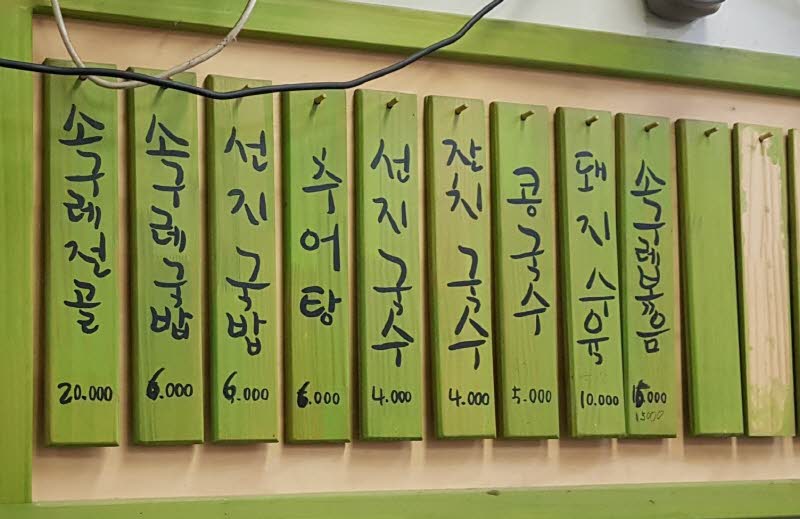 소구레전골
20.000
소구레국밥
6.000
선지국밥
6.000
추어탕
6.000
선지국수
4.000
잔치국수
4.000
콩국수
5.000
돼지수육
10.000
소구레볶음
15.000
15000